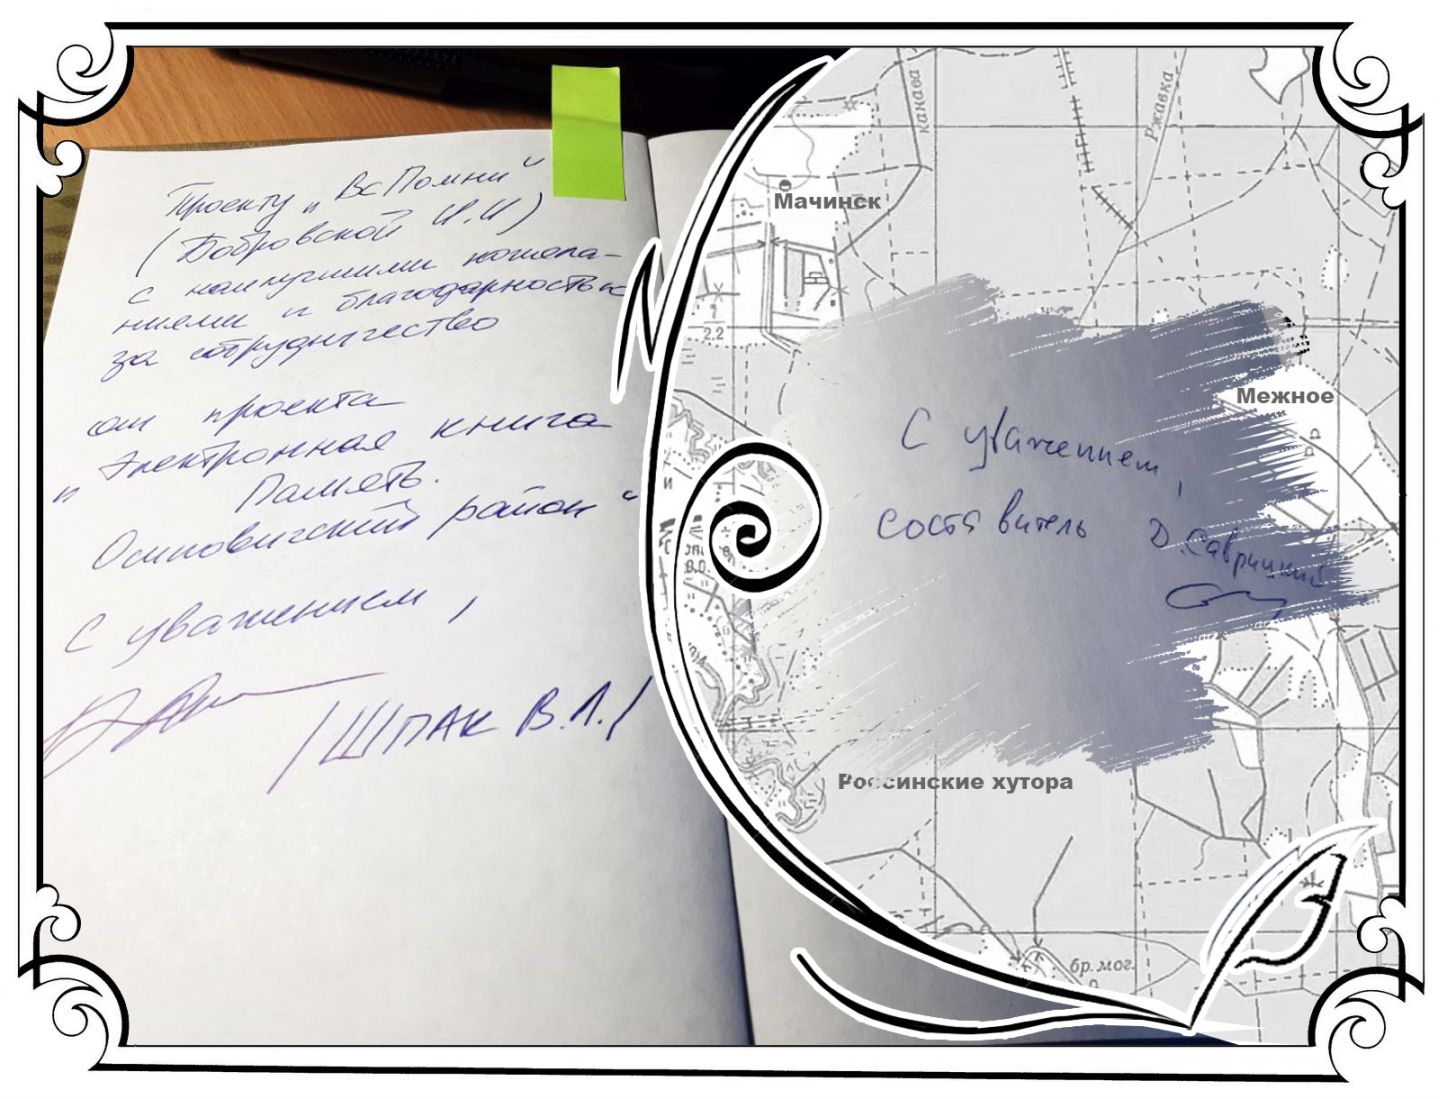 Проекту „ВсПомни“
(Бобровской И.И)
с наилучшими пожела-
ниями и благодарностью
за сотрудничество
от проекта
„Электронная книга
Память.
Осиповичский район“
С уважением,
/ШПАК В.Л./
канава
Ржавка
Мачинск
2.2
Межное
С уважением,
составитель Д. Саврицкий
Россинские хутора
бр. мог.